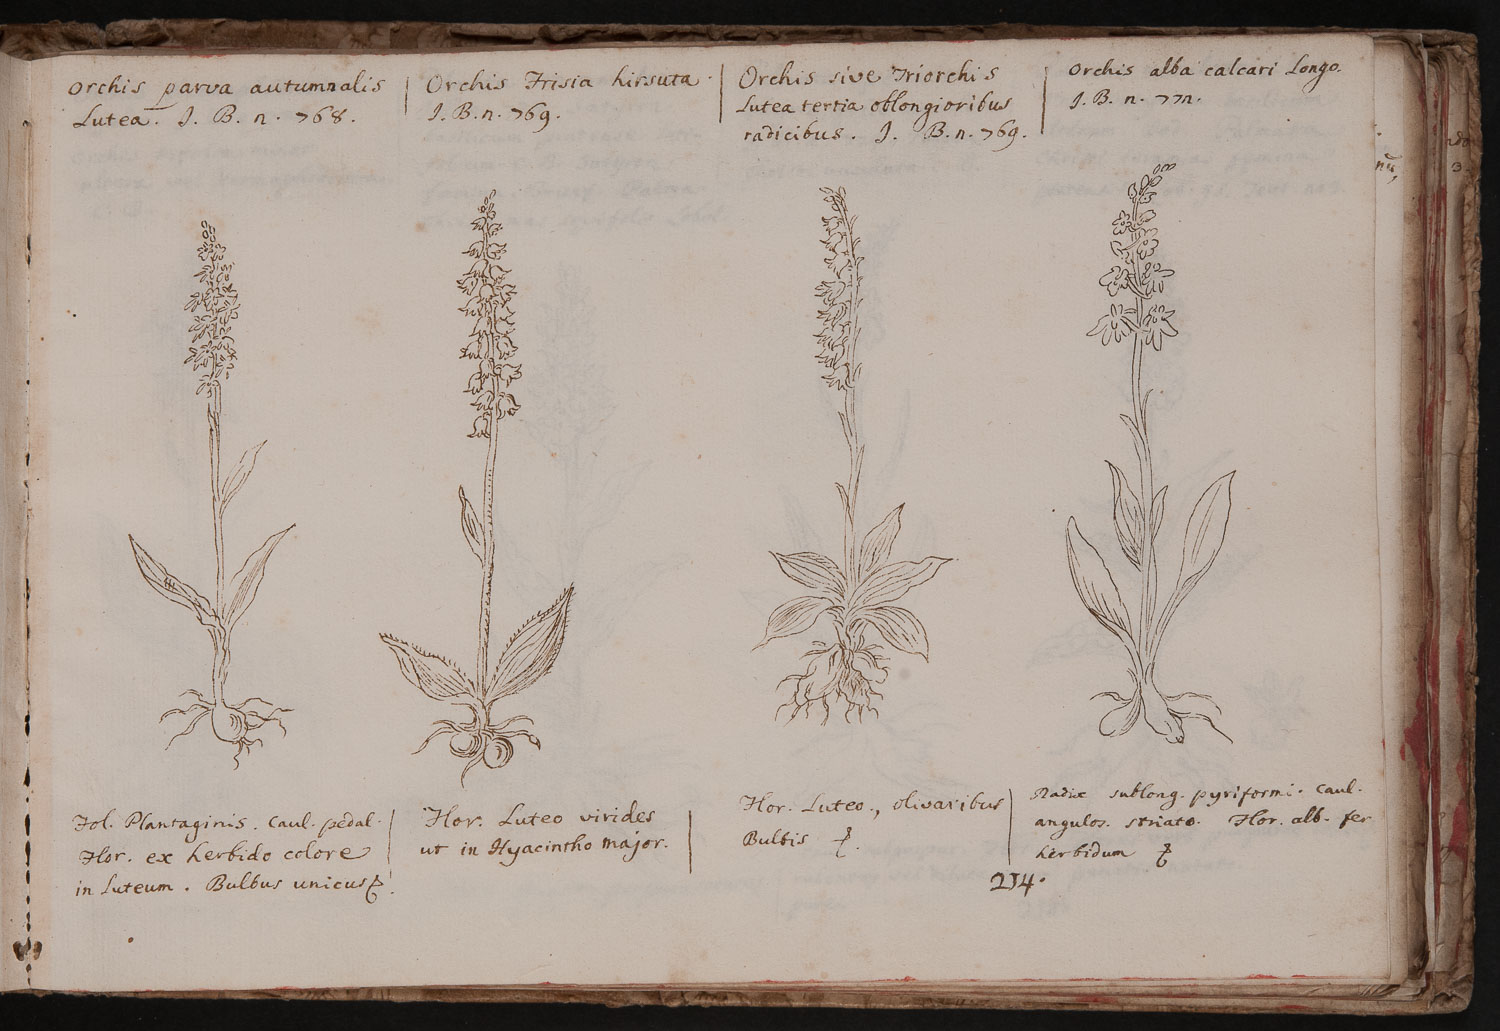 Orchis parva autumnalis
Lutea. J. B. n. 768.
Orchis Frisia hirsuta
J. B. n. 769.
Orchis sive Triorchis
Lutea tertia oblongioribus
radicibus. J. B. n. 769.
Orchis alba calcari Longo.
J. B. n. 771.
Fol. Plantaginis. Caul. pedal.
Flor. ex herbido colore
in Luteum. Bulbus unicus
Flor. Luteo virides
ut in Hyacintho major.
Flor. Luteo., olivaribus
Bulbis
Radix sublong. pyriformi. Caul.
angulos. striato. Flor. alb. fer
herbidum
214.